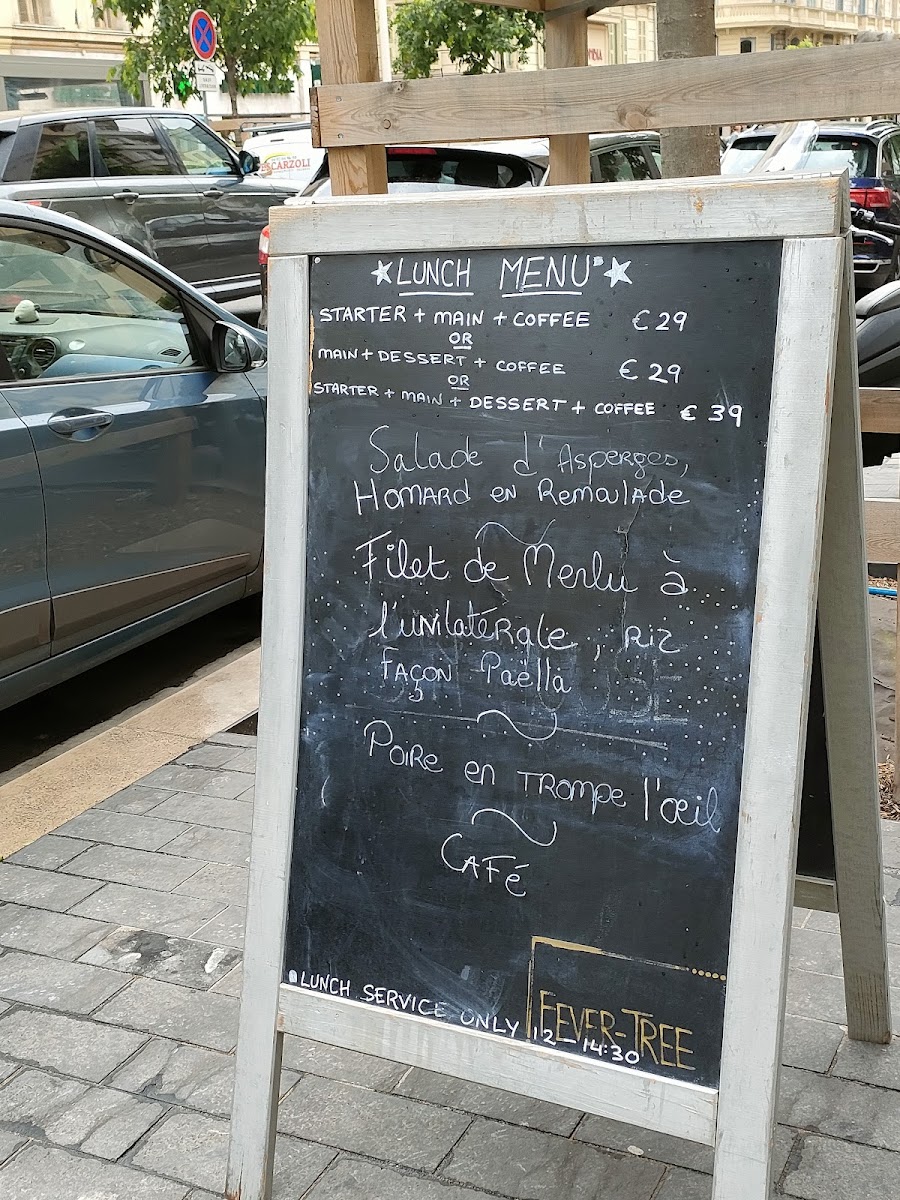 ESCARZOLI
★LUNCH MENU★
STARTER + MAIN + COFFEE € 29
OR
MAIN + DESSERT + COFFEE € 29
OR
STARTER + MAIN + DESSERT + COFFEE € 39
Salade d'Asperges,
Homard en Remoulade
Filet de Merlu à
l'unilatérale, riz
Façon Paëlla
Poire en trompe l'œil
Café
LUNCH SERVICE ONLY 12 - 14:30
FEVER-TREE